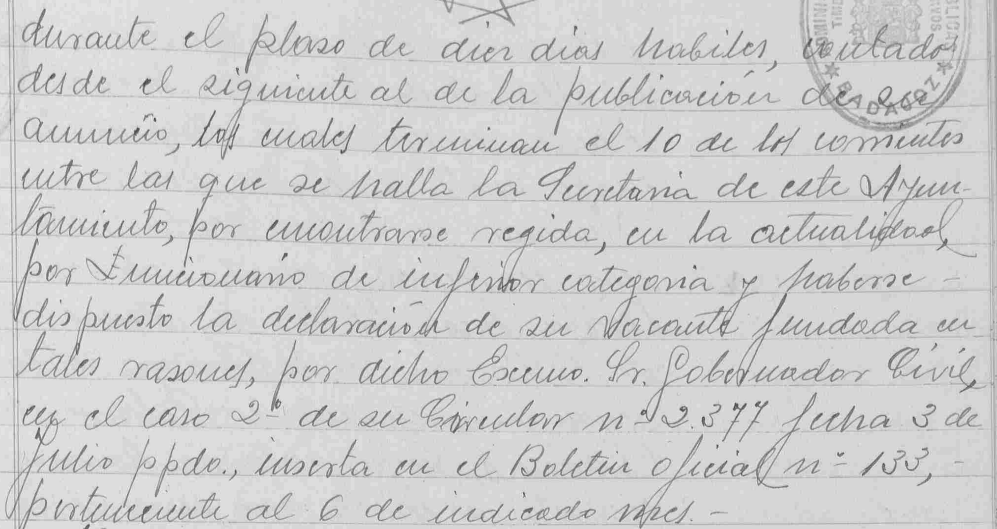 durante el plaso de diez dias habiles, contado
desde el siguiente al de la publicación de
anuncio, los cuales terminan el 10 de los corrientes
entre las que se halla la Secretaria de este Ayun-
tamiento, por encontrarse regida, en la actualidad,
por Funcionario de inferior categoria y haberse -
dispuesto la declaración de su vacante fundada en
tales rasones, por dicho Excmo. Sr. Gobernador Civil,
en el caso 2º de su Circular nº 2.377 fecha 3 de
Julio ppdo., inserta en el Boletin oficial nº 133, -
perteneciente al 6 de indicado mes. -
BADAJOZ